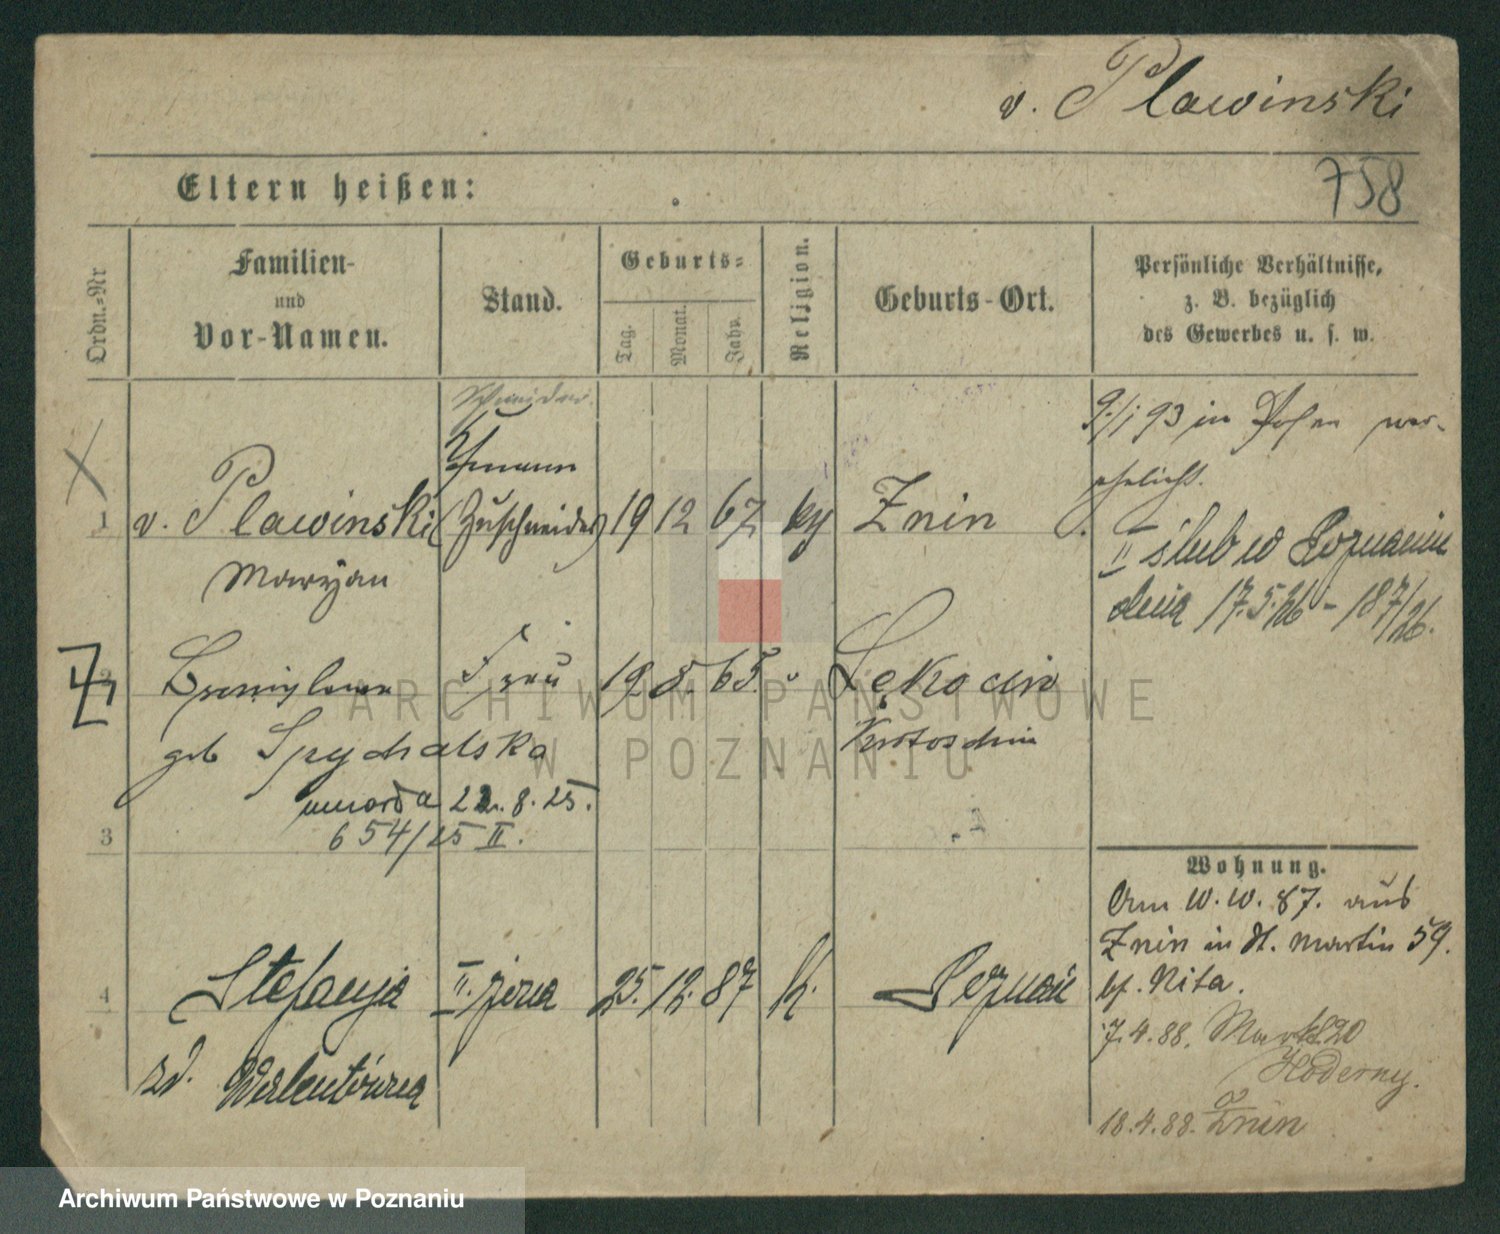 v. Plawinski
758
Eltern heißen:
Ordn.=Nr
Familien-
und
Vor-Namen.
Stand.
Geburts=
Tag.
Monat.
Jahr.
Religion.
Geburts-Ort.
Persönliche Verhältnisse,
z. B. bezüglich
des Gewerbes u. s. w.
Schneider
9/1 93 in Posen ver-
ehelicht.
1 v. Plawinski (Zuschneider) 19 12 67 Znin
Maryan
II ślub w Poznaniu
dnia 17.5.26 - 187/26.
2 Frau 19 5. 65. Łękocin
Krotoschin
geb Spychalska
umarła 22. 8. 25.
654/25 II.
3
4 Stefanja II. żona 25. 12. 87 k. Poznań
zd. Walentówna
Wohnung.
Am 10. 10. 87. aus
Znin in St. Martin 59.
bf. Nita.
7.4.88. Markt 20
Hoderny.
18.4.88. Znin
ARCHIWUM PAŃSTWOWE
W POZNANIU
Archiwum Państwowe w Poznaniu